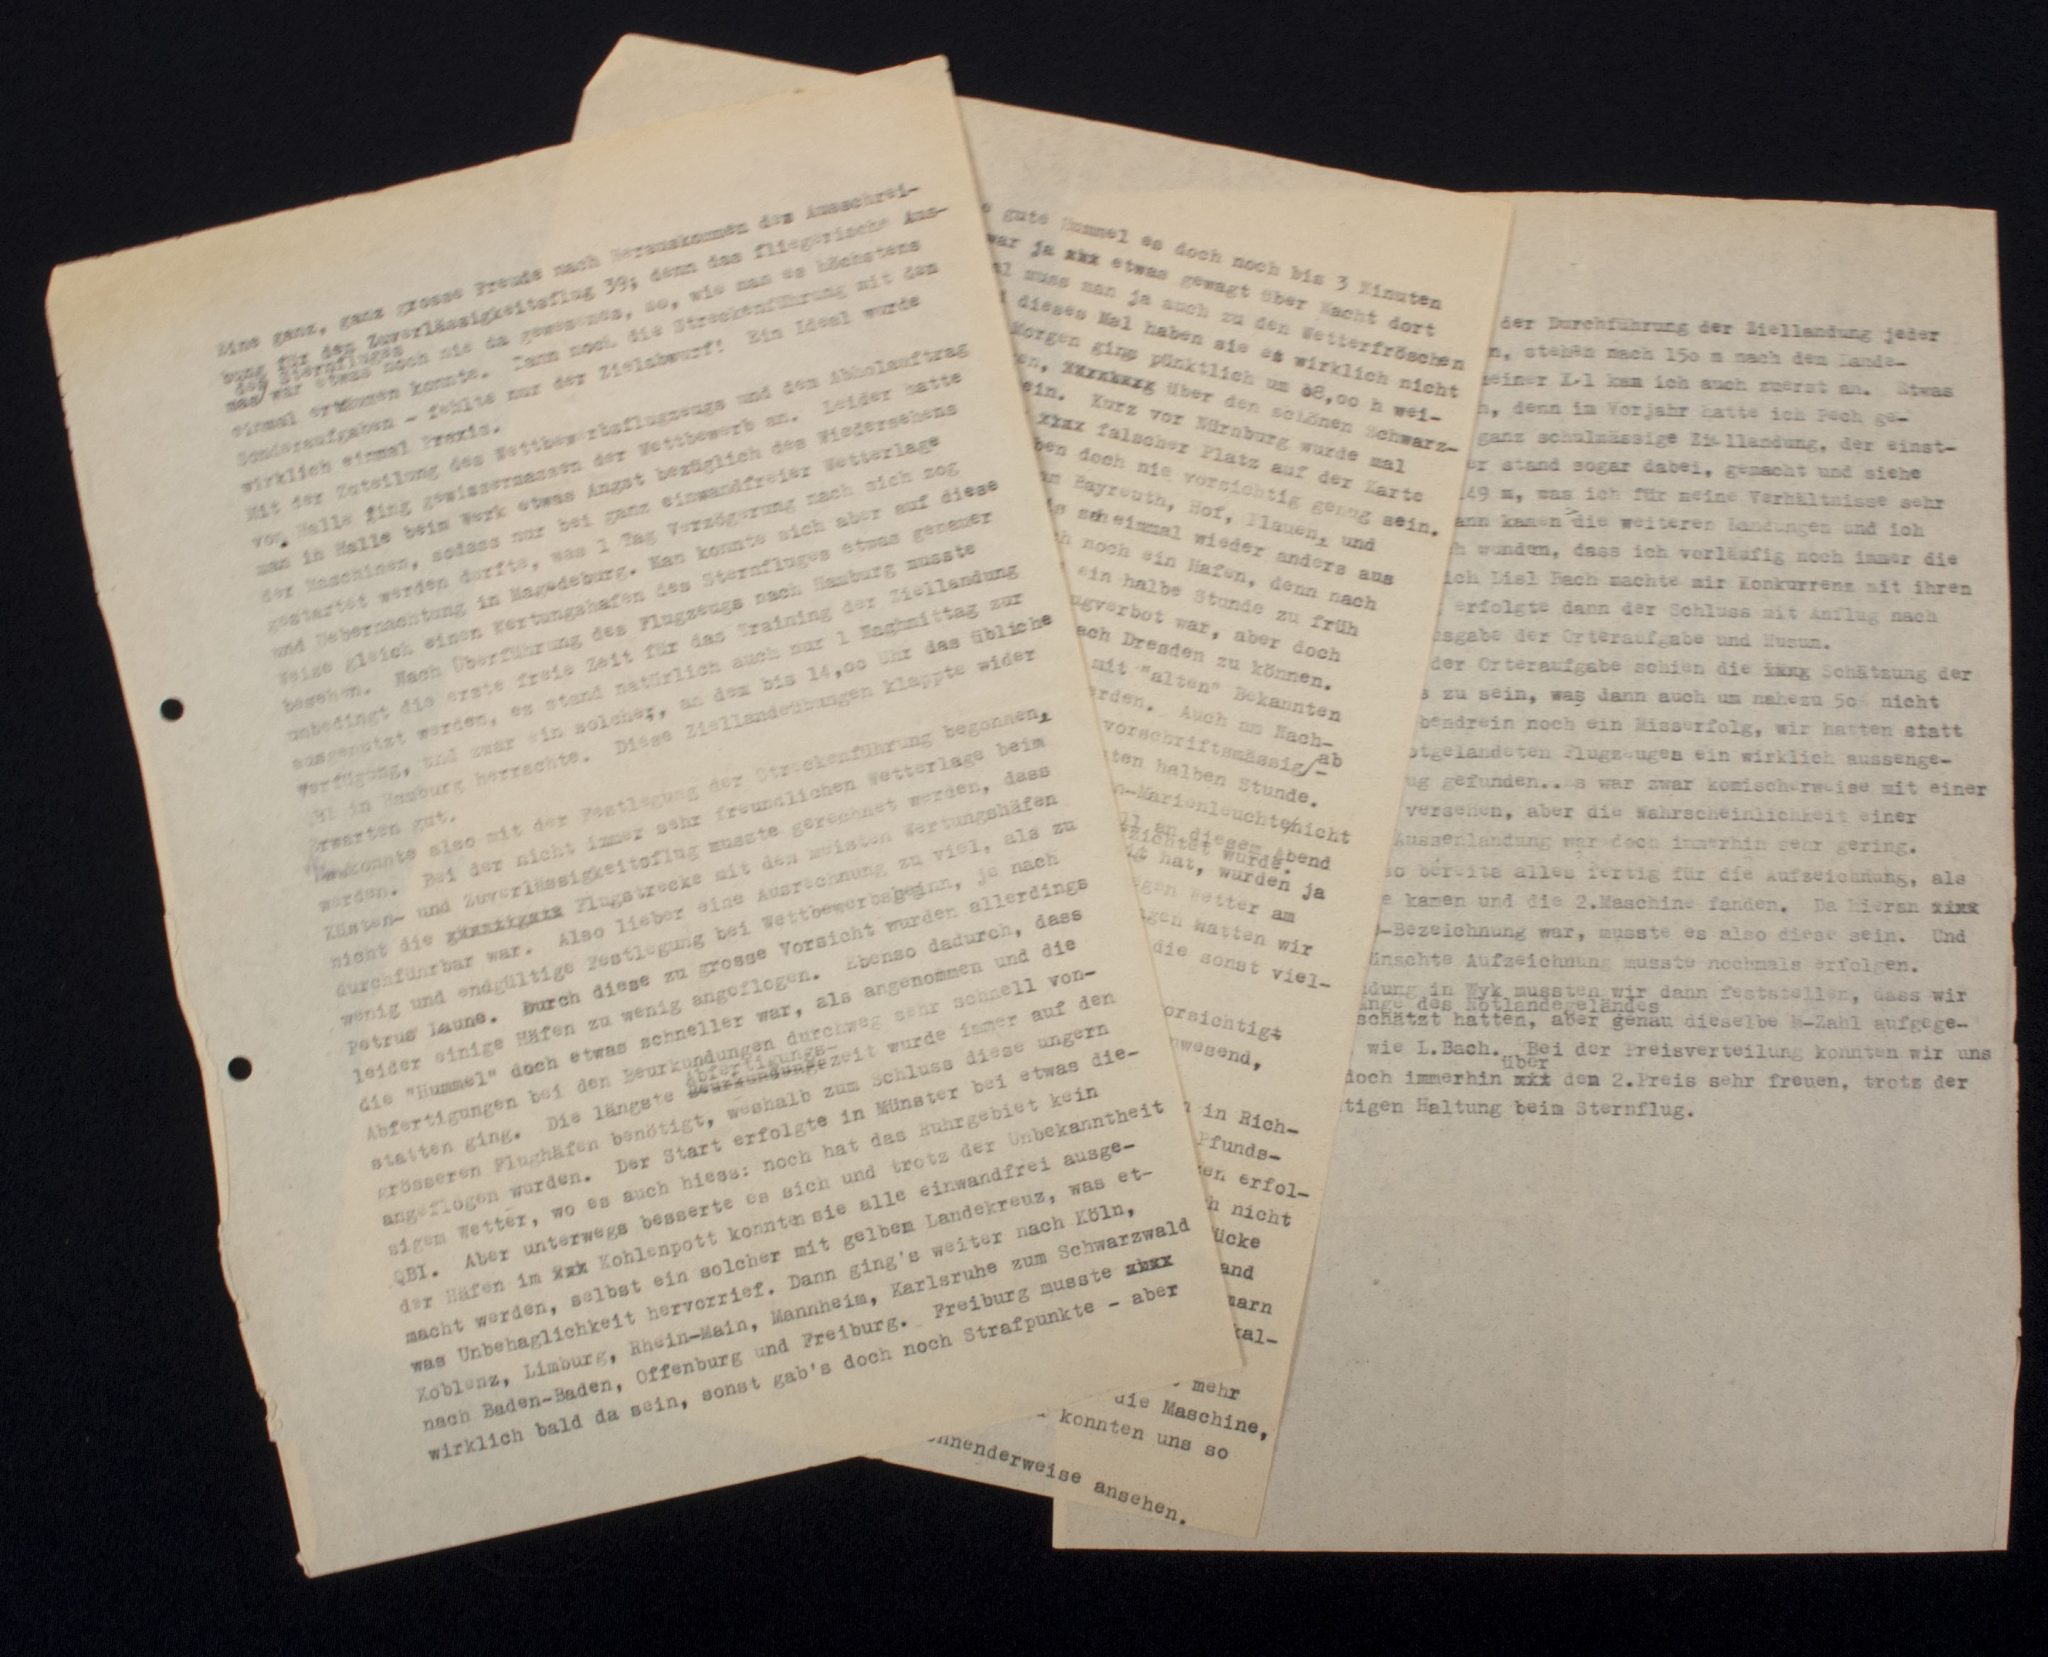 Eine ganz, ganz grosse Freude nach Herauskommen des Ausschrei-
bung für den Zuverlässigkeitsflug 39; denn das fliegerische Aus-
des Sternfluges
mass/war etwas noch nie da gewesenes, so, wie man es höchstens
einmal erträumen konnte. Dann noch die Streckenführung mit den
Sonderaufgaben - fehlte nur der Zielabwurf! Ein Ideal wurde
wirklich einmal Praxis.
Mit der Zuteilung des Wettbewerbsflugzeugs und dem Abholauftrag
von Halle fing gewissermassen der Wettbewerb an. Leider hatte
man in Halle beim Werk etwas Angst bezüglich des Wiedersehens
der Maschinen, sodass nur bei ganz einwandfreier Wetterlage
gestartet werden durfte, was 1 Tag Verzögerung nach sich zog
und Uebernachtung in Magedeburg. Man konnte sich aber auf diese
Weise gleich einen Wertungshafen des Sternfluges etwas genauer
besehen. Nach Überführung des Flugzeugs nach Hamburg musste
unbedingt die erste freie Zeit für das Training der Ziellandung
ausgenutzt werden, es stand natürlich auch nur 1 Nachmittag zur
Verfügung, und zwar ein solcher, an dem bis 14,00 Uhr das übliche
QBI in Hamburg herrschte. Diese Ziellandeübungen klappte wider
Erwarten gut.
konnte also mit der Festlegung der Streckenführung begonnen
werden. Bei der nicht immer sehr freundlichen Wetterlage beim
Küsten- und Zuverlässigkeitsflug musste gerechnet werden, dass
nicht die xxxxxxxxx Flugstrecke mit den meisten Wertungshäfen
durchführbar war. Also lieber eine Ausrechnung zu viel, als zu
wenig und endgültige Festlegung bei Wettbewerbsbeginn, je nach
Petrus Laune. Durch diese zu grosse Vorsicht wurden allerdings
leider einige Häfen zu wenig angeflogen. Ebenso dadurch, dass
die "Hummel" doch etwas schneller war, als angenommen und die
Abfertigungen bei den Beurkundungen durchweg sehr schnell von-
Abfertigungs-
statten ging. Die längste Beurkundungszeit wurde immer auf den
grösseren Flughäfen benötigt, weshalb zum Schluss diese ungern
angeflogen wurden. Der Start erfolgte in Münster bei etwas die-
sigem Wetter, wo es auch hiess: noch hat das Ruhrgebiet kein
QBI. Aber unterwegs besserte es sich und trotz der Unbekanntheit
der Häfen im xxx Kohlenpott konnten sie alle einwandfrei ausge-
macht werden, selbst ein solcher mit gelbem Landekreuz, was et-
was Unbehaglichkeit hervorrief. Dann ging's weiter nach Köln,
Koblenz, Limburg, Rhein-Main, Mannheim, Karlsruhe zum Schwarzwald
nach Baden-Baden, Offenburg und Freiburg. Freiburg musste xxxx
wirklich bald da sein, sonst gab's doch noch Strafpunkte - aber
gute Hummel es doch noch bis 3 Minuten
war ja xxx etwas gewagt über Nacht dort
muss man ja auch zu den Wetterfröschen
dieses Mal haben sie es wirklich nicht
Morgen ging pünktlich um 08,00 h wei-
en, xxxxxxxx über den schönen Schwarz-
ein. Kurz vor Nürnburg wurde mal
xxxx falscher Platz auf der Karte
ben doch nie vorsichtig genug sein.
Bayreuth, Hof, Plauen, und
einmal wieder anders aus
noch ein Hafen, denn nach
ein halbe Stunde zu früh
ugverbot war, aber doch
ach Dresden zu können.
mit "alten" Bekannten
erden. Auch am Nach-
vorschriftsmässig/ab
ten halben Stunde.
n-Marienleuchte/nicht
an diesem Abend
zichtet wurde.
hat, wurden ja
gen Wetter am
gen hatten wir
die sonst viel-
orsichtigt
nwesend,
in Rich-
Pfunds-
en erfol-
h nicht
ücke
and
marn
kal-
mehr
die Maschine,
konnten uns so
nnenderweise ansehen.
der Durchführung der Ziellandung jeder
n, stehen nach 150 m nach dem Lande-
meiner Kl kam ich auch zuerst an. Etwas
n, denn im Vorjahr hatte ich Pech ge-
ganz schulmässige Ziellandung, der einst-
er stand sogar dabei, gemacht und siehe
49 m, was ich für meine Verhältnisse sehr
ann kamen die weiteren Landungen und ich
h wunden, dass ich vorläufig noch immer die
ich Lisl Bach machte mir Konkurrenz mit ihren
erfolgte dann der Schluss mit Anflug nach
sgabe der Orteraufgabe und Husum.
der Orteraufgabe schien die xxxx Schätzung der
s zu sein, was dann auch um nahezu 50 nicht
bendrein noch ein Misserfolg, wir hatten statt
otgelandeten Flugzeugen ein wirklich aussenge-
ug gefunden..es war zwar komischerweise mit einer
versehen, aber die Wahrscheinlichkeit einer
Aussenlandung war doch immerhin sehr gering.
so bereits alles fertig für die Aufzeichnung, als
e kamen und die 2.Maschine fanden. Da hieran xxxx
-Bezeichnung war, musste es also diese sein. Und
ünschte Aufzeichnung musste nochmals erfolgen.
dung in Wyk mussten wir dann feststellen, dass wir
änge des Notlandegeländes
schätzt hatten, aber genau dieselbe M-Zahl aufgege-
wie L.Bach. Bei der Preisverteilung konnten wir uns
über
doch immerhin xxx den 2.Preis sehr freuen, trotz der
tigen Haltung beim Sternflug.